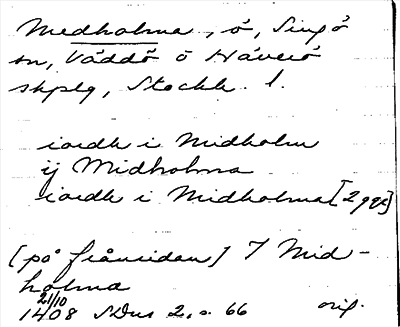 Medholma, ö, Singö
sn, Väddö o Häverö
skplg, Stockh. l.
iordh i Midholm
ij Midholma
iordh i Midholma [2 ggr]
[på frånsidan] 7 Mid-
holma
21/10
1408 SDns 2, s. 66 orig.